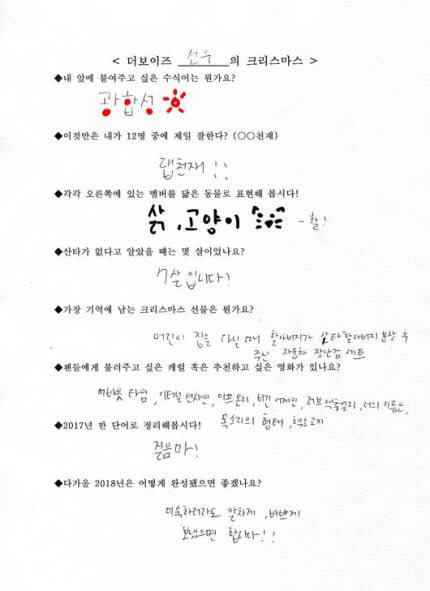 < 더보이즈 선우 의 크리스마스 >
◆내 앞에 붙여주고 싶은 수식어는 뭔가요?
광합성
◆이것만은 내가 12명 중에 제일 잘한다? (○○천재)
랩천재 !!
◆각각 오른쪽에 있는 멤버를 닮은 동물로 표현해 봅시다!
삵, 고양이 - 활!
◆산타가 없다고 알았을 때는 몇 살이었나요?
7살입니다!
◆가장 기억에 남는 크리스마스 선물은 뭔가요?
어린이 집을 다닐 때 할아버지가 산타할아버지 분장 후
주신 자동차 장난감 세트
◆팬들에게 불러주고 싶은 캐럴 혹은 추천하고 싶은 영화가 있나요?
어바웃 타임, 이터널 선샤인, 이프 온리, 비긴 어게인, 러브 액츄얼리, 너의 이름은,
목소리의 형태, 핵소고지
◆2017년 한 단어로 정리해봅시다!
젊음마!
◆다가올 2018년은 어떻게 완성됐으면 좋겠나요?
미숙하더라도 알차게, 바쁘게
보냈으면 합니다!!